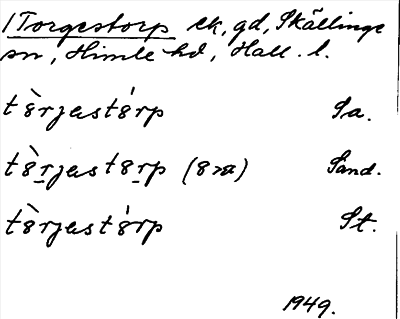 1 Torgestorp ek, gd, Skällinge
sn, Himle hd, Hall. l.
t8̀rjast8́rp Sa.
t8̀r̲jast8r̲p (8>a) Sand.
t8̀rjast8́rp St.
1949.